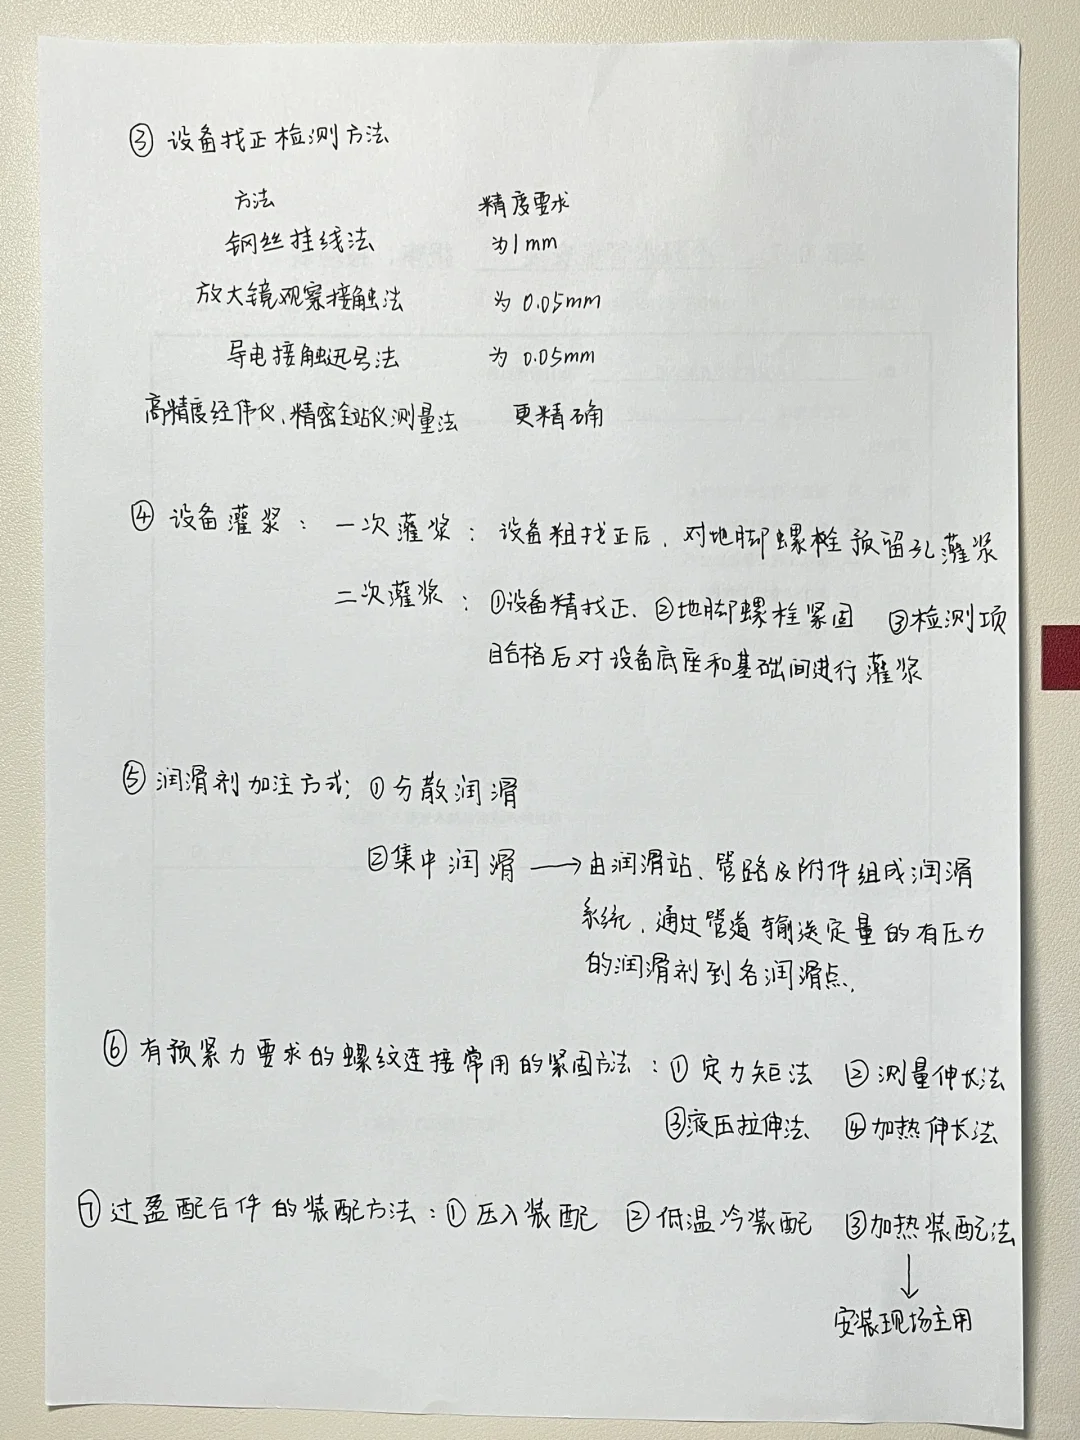 ③ 设备找正检测方法
方法 精度要求
钢丝挂线法 为1mm
放大镜观察接触法 为 0.05mm
导电接触讯号法 为 0.05mm
高精度经伟仪、精密全站仪测量法 更精确
④ 设备灌浆： 一次灌浆： 设备粗找正后，对地脚螺栓预留孔灌浆
二次灌浆： ①设备精找正、②地脚螺栓紧固 ③检测项
目合格后对设备底座和基础间进行灌浆
⑤ 润滑剂加注方式： ①分散润滑
②集中润滑 → 由润滑站、管路及附件组成润滑
系统，通过管道输送定量的有压力
的润滑剂到各润滑点。
⑥ 有预紧力要求的螺纹连接常用的紧固方法：① 定力矩法 ② 测量伸长法
③液压拉伸法 ④加热伸长法
⑦ 过盈配合件的装配方法：① 压入装配 ② 低温冷装配 ③加热装配法
↓
安装现场主用